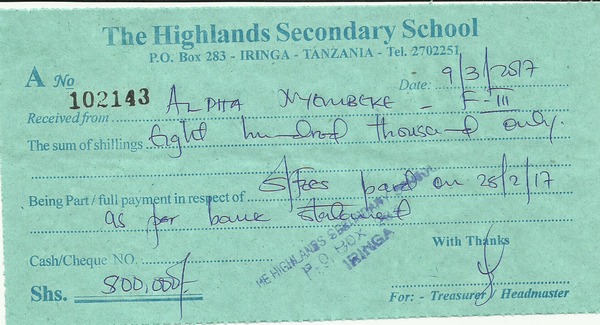 The Highlands Secondary School
P.O. Box 283 - IRINGA - TANZANIA - Tel. 2702251
A No 102143
Date: 9/3/2017
Received from ALPHA NYOMBEKE - F-III
The sum of shillings Eight hundred thousand only.
Being Part / full payment in respect of S/Fees paid on 28/2/17
as per bank statement
THE HIGHLANDS SECONDARY
P.O. BOX
IRINGA
Cash/Cheque NO.
With Thanks
Shs. 800,000/-
For: - Treasurer / Headmaster